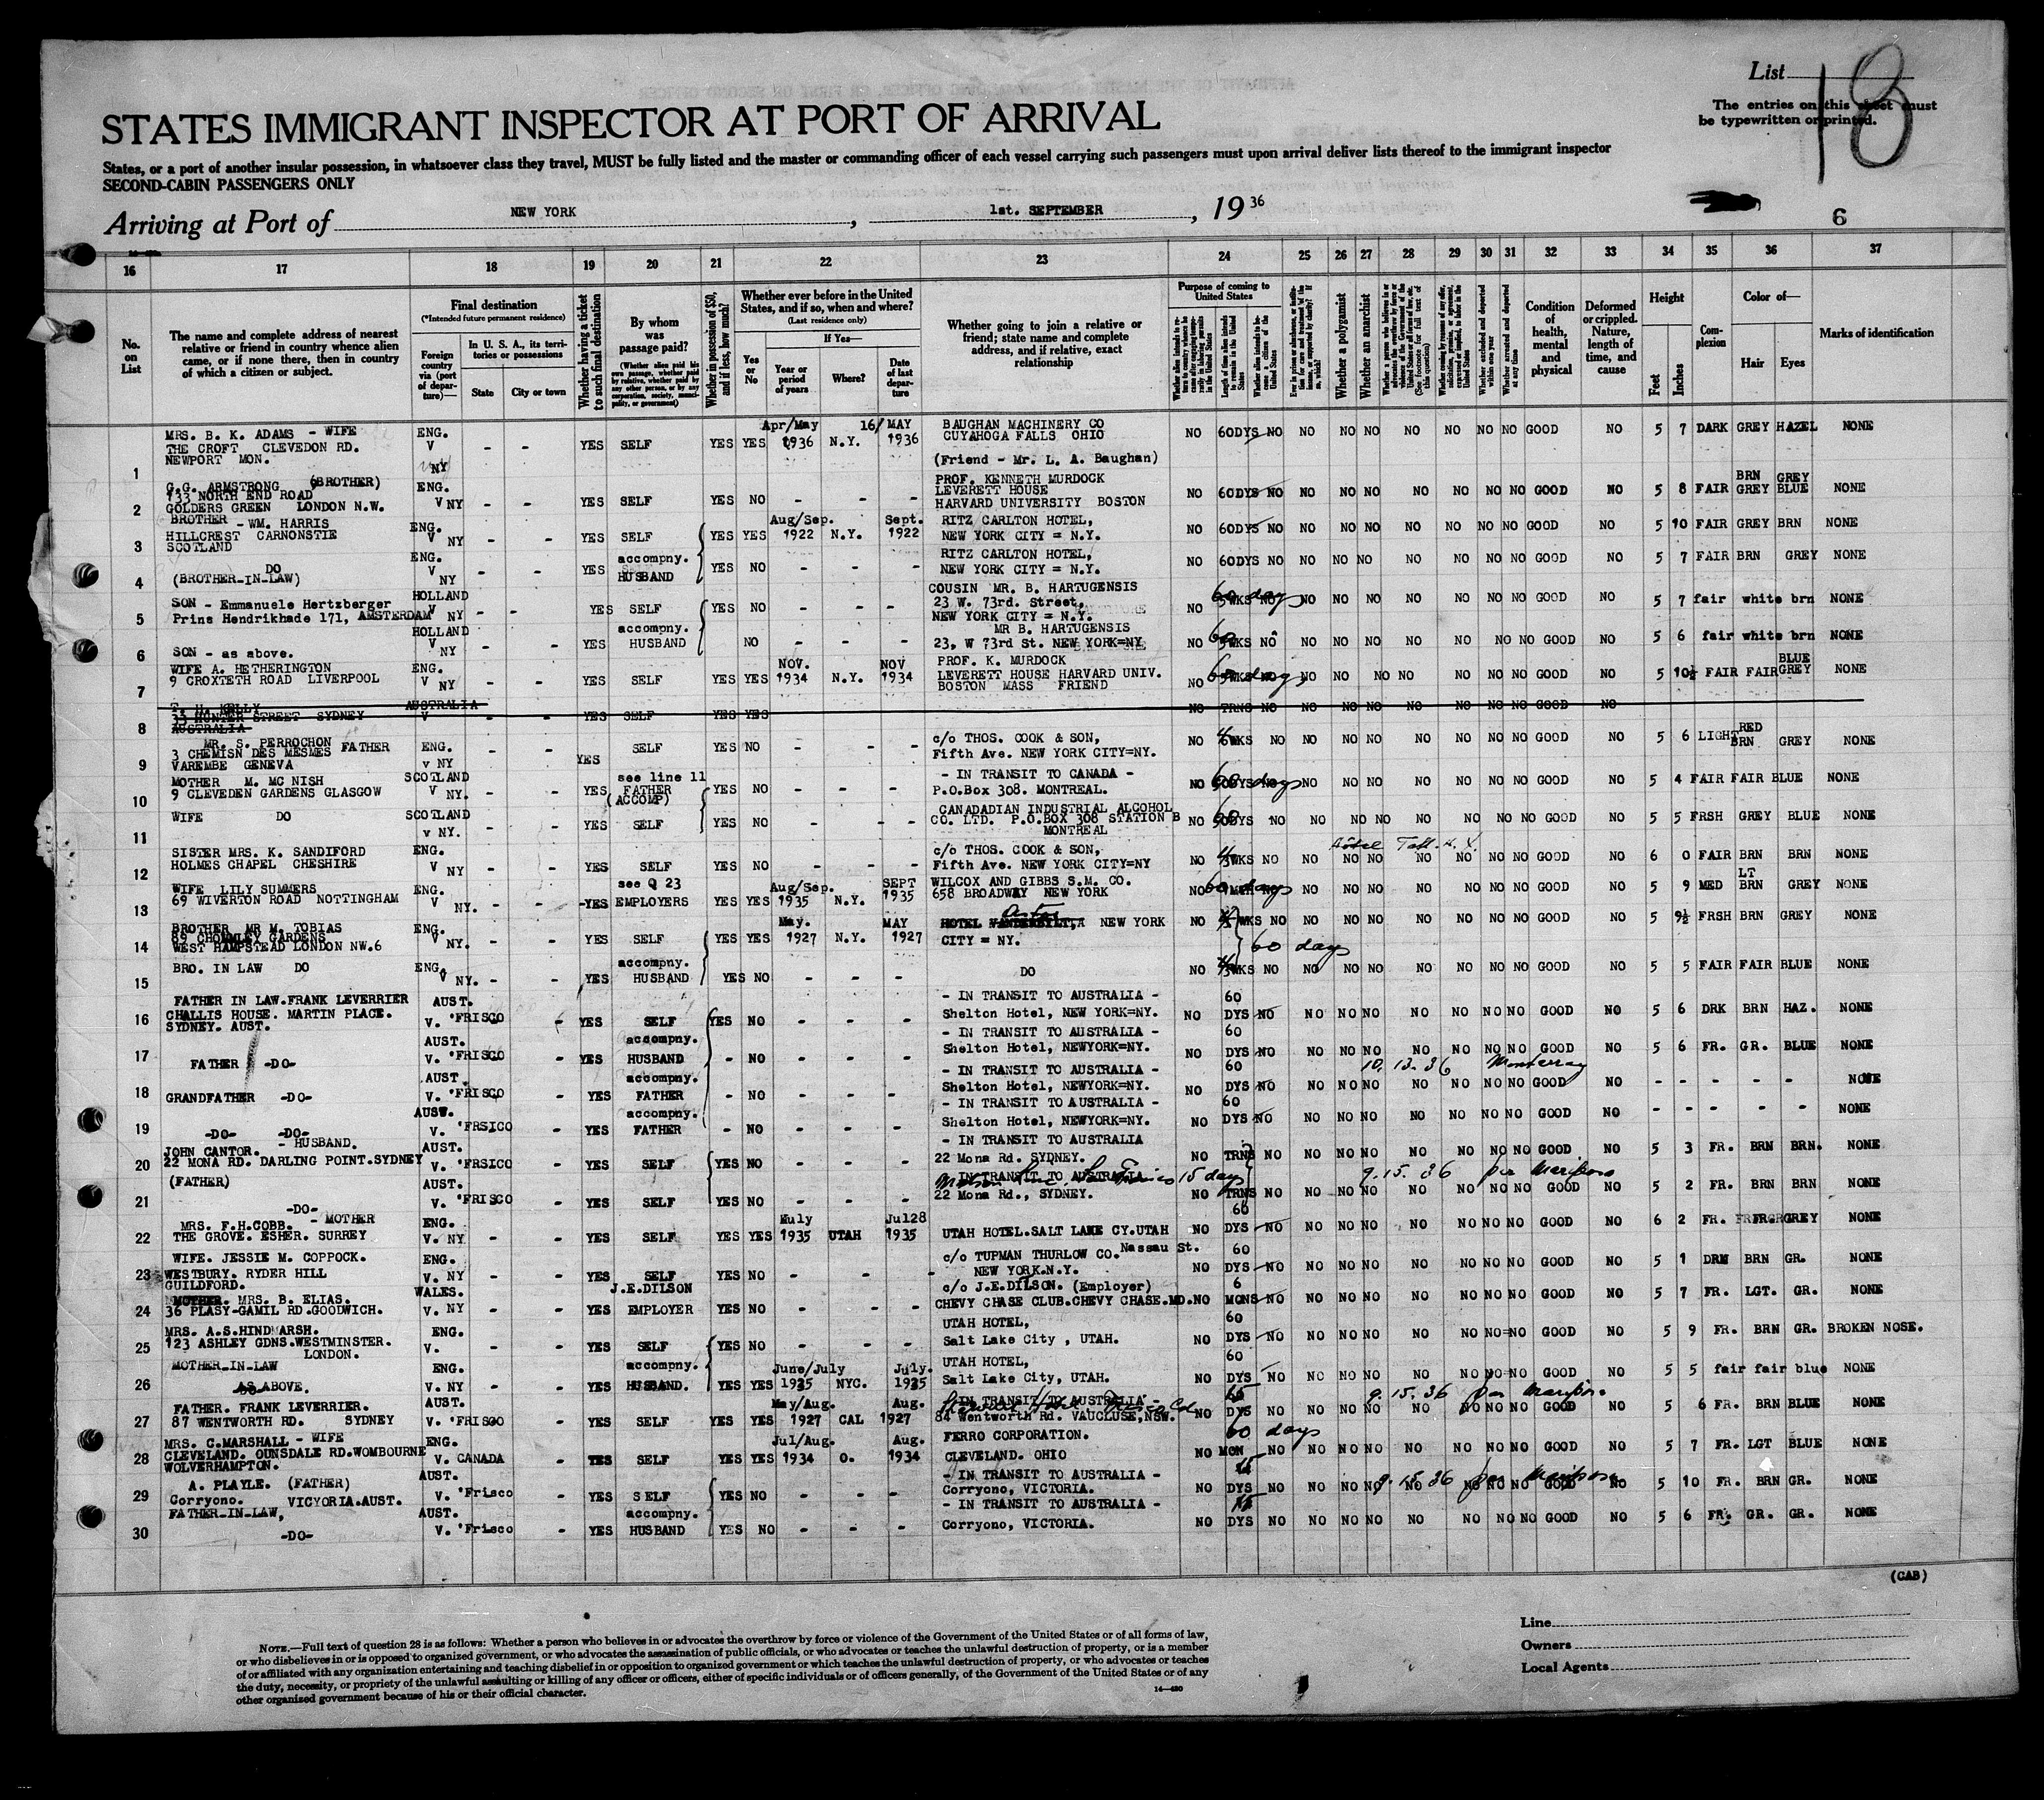 List 18
The entries on this sheet must
be typewritten or printed.
STATES IMMIGRANT INSPECTOR AT PORT OF ARRIVAL
States, or a port of another insular possession, in whatsoever class they travel, MUST be fully listed and the master or commanding officer of each vessel carrying such passengers must upon arrival deliver lists thereof to the immigrant inspector
SECOND-CABIN PASSENGERS ONLY
Arriving at Port of NEW YORK, 1st. SEPTEMBER, 1936
6
16 17 18 19 20 21 22 23 24 25 26 27 28 29 30 31 32 33 34 35 36 37
No. on List
The name and complete address of nearest relative or friend in country whence alien came, or if none there, then in country of which a citizen or subject.
Final destination
(*Intended future permanent residence)
Foreign country via (port of departure)—
In U. S. A., its territories or possessions
State
City or town
Whether having a ticket to such final destination
By whom was passage paid?
Whether in possession of $50, and if less, how much?
Whether ever before in the United States, and if so, when and where?
(Last residence only)
Yes or No
If Yes—
Year or period of years
Where?
Date of last departure
Whether going to join a relative or friend; state name and complete address, and if relative, exact relationship
Purpose of coming to United States
Whether a polygamist
Whether an anarchist
Condition of health, mental and physical
Deformed or crippled. Nature, length of time, and cause
Height
Feet
Inches
Complexion
Color of—
Hair
Eyes
Marks of identification
1 MRS. B. K. ADAMS - WIFE THE CROFT CLEVEDON RD. NEWPORT MON. ENG. V NY - - YES SELF YES YES Apr/May 1936 N.Y. 16/MAY 1936 BAUGHAN MACHINERY CO CUYAHOGA FALLS OHIO (Friend - Mr. L. A. Baughan) NO 60DYS NO NO NO NO NO NO NO NO GOOD NO 5 7 DARK GREY HAZEL NONE
2 G.G. ARMSTRONG (BROTHER) 133 NORTH END ROAD GOLDERS GREEN LONDON N.W. ENG. V NY - - YES SELF YES NO - - - PROF. KENNETH MURDOCK LEVERETT HOUSE HARVARD UNIVERSITY BOSTON NO 60DYS NO NO NO NO NO NO NO NO GOOD NO 5 8 FAIR BRN GREY GREY BLUE NONE
3 BROTHER - WM. HARRIS HILLCREST CARNONSTIE SCOTLAND ENG. V NY - - YES SELF YES YES Aug/Sep. 1922 N.Y. Sept. 1922 RITZ CARLTON HOTEL, NEW YORK CITY = N.Y. NO 60DYS NO NO NO NO NO NO NO NO GOOD NO 5 10 FAIR GREY BRN NONE
4 DO (BROTHER-IN-LAW) ENG. V NY - - YES accompny. HUSBAND YES NO - - - RITZ CARLTON HOTEL, NEW YORK CITY = N.Y. NO 60DYS NO NO NO NO NO NO NO NO GOOD NO 5 7 FAIR BRN GREY NONE
5 SON - Emmanuele Hertzberger Prins Hendrikhade 171, AMSTERDAM HOLLAND V NY - - YES SELF YES NO - - - COUSIN MR. B. HARTUGENSIS 23 W. 73rd. Street, NEW YORK CITY = N.Y. NO 60 days NO NO NO NO NO NO NO NO GOOD NO 5 7 fair white brn NONE
6 SON - as above. HOLLAND V NY - - YES accompny. HUSBAND NO - - - MR B. HARTUGENSIS 23, W 73rd St. NEW YORK=NY NO 60 NO NO NO NO NO NO NO NO GOOD NO 5 6 fair white brn NONE
7 WIFE A. HETHERINGTON 9 CROXTETH ROAD LIVERPOOL ENG. V NY - - YES SELF YES YES NOV. 1934 N.Y. NOV 1934 PROF. K. MURDOCK LEVERETT HOUSE HARVARD UNIV. BOSTON MASS FRIEND NO 60 days NO NO NO NO NO NO NO NO GOOD NO 5 10½ FAIR FAIR BLUE GREY NONE
8 T. H. KELLY 33 HUNTER STREET SYDNEY AUSTRALIA AUSTRALIA V - - YES SELF YES YES NO TRNS NO NO NO NO NO NO NO NO GOOD NO
9 MR. S. PERROCHON FATHER 3 CHEMISN DES MESMES VAREMBE GENEVA ENG. V NY - - YES SELF YES NO - - - c/o THOS. COOK & SON, Fifth Ave. NEW YORK CITY=NY. NO 4 WKS NO NO NO NO NO NO NO NO GOOD NO 5 6 LIGHT RED BRN GREY NONE
10 MOTHER M. MC NISH 9 CLEVEDEN GARDENS GLASGOW SCOTLAND V NY. - - YES see line 11 FATHER (ACCOMP) YES NO - - - - IN TRANSIT TO CANADA - P.O.Box 308. MONTREAL. NO 60 days NO NO NO NO NO NO NO GOOD NO 5 4 FAIR FAIR BLUE NONE
11 WIFE DO SCOTLAND v NY. - - YES SELF YES NO - - - CANADADIAN INDUSTRIAL ALCOHOL CO. LTD. P.O.BOX 308 STATION B MONTREAL NO 60 DYS NO NO NO NO NO NO NO NO GOOD NO 5 5 FRSH GREY BLUE NONE
12 SISTER MRS. K. SANDIFORD HOLMES CHAPEL CHESHIRE ENG. V NY - - YES SELF YES NO - - - c/o THOS. COOK & SON, Fifth Ave. NEW YORK CITY=NY NO 4 WKS NO NO NO NO NO NO NO NO GOOD NO 6 0 FAIR BRN BRN NONE
13 WIFE LILY SUMMERS 69 WIVERTON ROAD NOTTINGHAM ENG. V NY. - - YES see Q 23 EMPLOYERS YES YES Aug/Sep. 1935 N.Y. SEPT 1935 WILCOX AND GIBBS S.M. CO. 658 BROADWAY NEW YORK NO 60 days NO NO NO NO NO NO NO NO GOOD NO 5 9 MED LT BRN GREY NONE
14 BROTHER MR M. TOBIAS 89 CHOLMLEY GARDENS WEST HAMPSTEAD LONDON NW.6 ENG. V NY. - - YES SELF YES YES May. 1927 N.Y. MAY 1927 HOTEL Astor NEW YORK CITY = NY. NO WKS NO NO NO NO NO NO NO NO GOOD NO 5 9½ FRSH BRN GREY NONE
60 days
15 BRO. IN LAW DO ENG. V NY. - - YES accompny. HUSBAND YES NO - - - DO NO WKS NO NO NO NO NO NO NO NO GOOD NO 5 5 FAIR FAIR BLUE NONE
16 FATHER IN LAW.FRANK LEVERRIER CHALLIS HOUSE. MARTIN PLACE. SYDNEY. AUST. AUST. V. 'FRISCO - YES SELF YES NO - - - - IN TRANSIT TO AUSTRALIA - Shelton Hotel, NEW YORK=NY. NO 60 DYS NO NO NO NO NO NO NO NO GOOD NO 5 6 DRK BRN HAZ. NONE
17 FATHER -DO- AUST. V. 'FRISCO - YES accompny. HUSBAND - NO - - - - IN TRANSIT TO AUSTRALIA - Shelton Hotel, NEWYORK=NY. NO 60 DYS NO NO NO NO NO NO NO NO GOOD NO 5 6 FR. GR. BLUE NONE
10.13.36 Monterray
18 GRANDFATHER -DO- AUST. V. 'FRISCO - YES accompny. FATHER - NO - - - - IN TRANSIT TO AUSTRALIA - Shelton Hotel, NEWYORK=NY. NO 60 DYS NO NO NO NO NO NO NO NO GOOD NO - - - - - NONE
19 -DO- -DO- AUSW. V. 'FRSICO - YES accompny. FATHER - NO - - - - IN TRANSIT TO AUSTRALIA - Shelton Hotel, NEWYORK=NY. NO 60 DYS NO NO NO NO NO NO NO NO GOOD NO - - - - - NONE
20 JOHN CANTOR. - HUSBAND. 22 MONA RD. DARLING POINT.SYDNEY AUST. V. 'FRSICO - YES SELF YES NO - - - - IN TRANSIT TO AUSTRALIA 22 Mona Rd. SYDNEY. NO TRNS NO NO NO NO NO NO NO NO GOOD NO 5 3 FR. BRN BRN. NONE
15 days 9.15.36 per Mariposa
21 (FATHER) -DO- AUST. V. 'FRISCO - YES SELF YES NO - - - IN TRANSIT TO AUSTRALIA 22 Mona Rd., SYDNEY. NO TRNS NO NO NO NO NO NO NO NO GOOD NO 5 2 FR. BRN BRN NONE
22 MRS. F.H.COBB. - MOTHER THE GROVE. ESHER. SURREY ENG. V. NY - - YES SELF YES YES Muly 1935 UTAH Jul28 1935 UTAH HOTEL.SALT LAKE CY.UTAH NO 60 DYS NO NO NO NO NO NO NO NO GOOD NO 6 2 FR. GREY NONE
23 WIFE. JESSIE M. COPPOCK. WESTBURY. RYDER HILL GUILDFORD. ENG. V. NY - - YES SELF YES NO - - - c/o TUPMAN THURLOW CO. Nassau St. NEW YORK.N.Y. NO 60 DYS NO NO NO NO NO NO NO NO GOOD NO 5 1 DRN BRN GR. NONE
24 MOTHER. MRS. B. ELIAS. 36 PLASY-GAMIL RD.GOODWICH. WALES. V. NY - - YES J.E.DILSON EMPLOYER YES NO - - - c/o J.E.DILSON. (Employer) CHEVY CHASE CLUB.CHEVY CHASE.MD. NO 6 MONS NO NO NO NO NO NO NO NO GOOD NO 5 7 FR. LGT. GR. NONE
25 MRS. A.S.HINDMARSH. 123 ASHLEY GDNS.WESTMINSTER. LONDON. ENG. V. - - YES SELF YES NO - - - UTAH HOTEL, Salt Lake City , UTAH. NO 60 DYS NO NO NO NO NO NO NO NO GOOD NO 5 9 FR. BRN GR. BROKEN NOSE.
26 MOTHER-IN-LAW AS ABOVE. ENG. V. NY - - YES accompny. HUSBAND. YES YES June/July 1935 NYC. July. 1935 UTAH HOTEL, Salt Lake City, UTAH. NO 60 DYS NO NO NO NO NO NO NO NO GOOD NO 5 5 fair fair blue NONE
9.15.36 per Mariposa
27 FATHER. FRANK LEVERRIER. 87 WENTWORTH RD. SYDNEY AUST. V. 'FRISCO - YES SELF YES YES May/Aug. 1927 CAL Aug. 1927 IN TRANSIT TO AUSTRALIA- 84 Wentworth Rd. VAUCLUSE,NSW. NO DYS NO NO NO NO NO NO NO NO GOOD NO 5 6 FR. BRN BLUE NONE
28 MRS. C.MARSHALL - WIFE CLEVELAND. OUNSDALE RD.WOMBOURNE WOLVERHAMPTON. ENG. V. CANADA - YES SELF YES YES Jul/Aug. 1934 O. Aug. 1934 FERRO CORPORATION. CLEVELAND. OHIO NO 60 days MON NO NO NO NO NO NO NO NO GOOD NO 5 7 FR. LGT BLUE NONE
9.15.36 per Mariposa
29 A. PLAYLE. (FATHER) Corryono. VICYORIA.AUST. AUST. V. 'Frisco - YES SELF YES NO - - - - IN TRANSIT TO AUSTRALIA - Corryono, VICTORIA. NO 15 DYS NO NO NO NO NO NO NO NO GOOD NO 5 10 FR. BRN GR. NONE
30 FATHER-IN-LAW, -DO- AUST. V. 'Frisco - YES accompny. HUSBAND YES NO - - - - IN TRANSIT TO AUSTRALIA - Corryono, VICTORIA. NO 15 DYS NO NO NO NO NO NO NO NO GOOD NO 5 6 FR. GR. GR. NONE
(CAB)
Line
Owners
Local Agents
NOTE.—Full text of question 28 is as follows: Whether a person who believes in or advocates the overthrow by force or violence of the Government of the United States or of all forms of law,
or who disbelieves in or is opposed to organized government, or who advocates the assassination of public officials, or who advocates or teaches the unlawful destruction of property, or is a member
of or affiliated with any organization entertaining and teaching disbelief in or opposition to organized government or which teaches the unlawful destruction of property, or who advocates or teaches
the duty, necessity, or propriety of the unlawful assaulting or killing of any officer or officers, either of specific individuals or of officers generally, of the Government of the United States or of any
other organized government because of his or their official character.
14—480